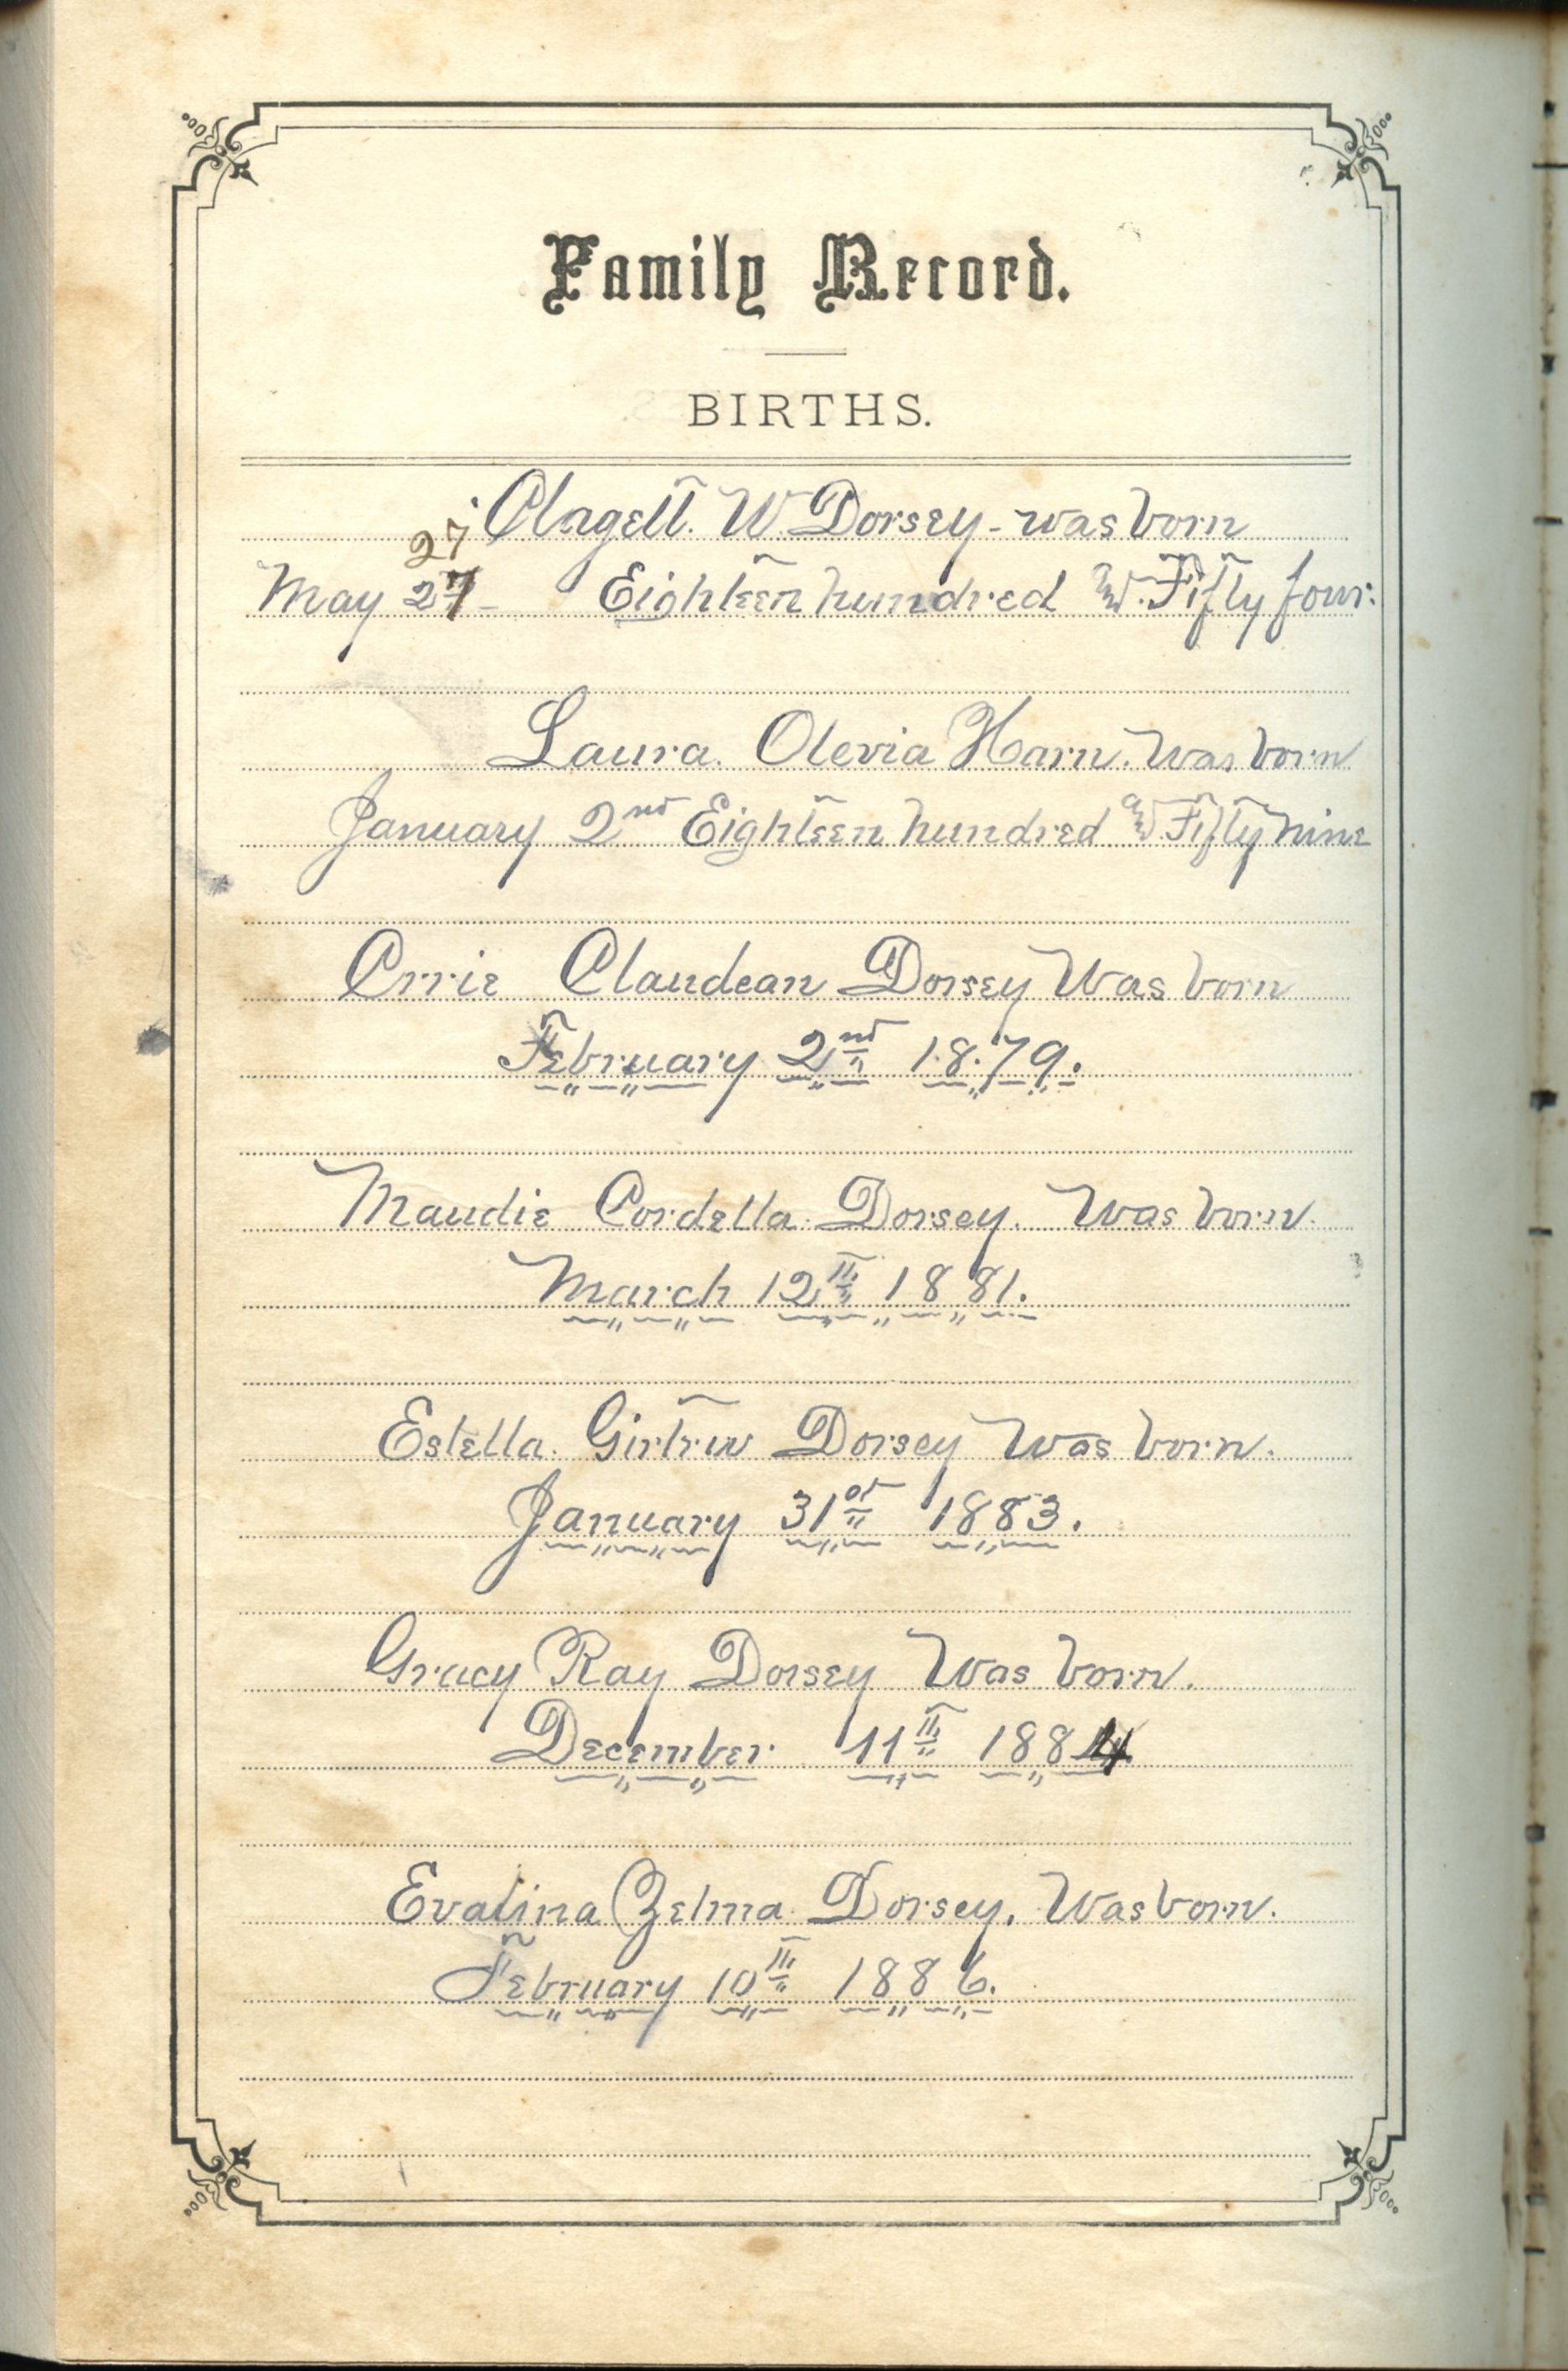 Family Record.
BIRTHS.
Clagett. W. Dorsey - was born
27
May 27 - Eighteen hundred and Fifty four.
Laura. Olevia Harn. Was born
January 2nd Eighteen hundred and Fifty nine
Orrie Claudean Dorsey Was born
February 2nd 1879.
Maudie Cordella. Dorsey. Was born.
March 12th 1881.
Estella. Girtrew Dorsey Was born.
January 31st 1883.
Gracy Ray Dorsey Was born.
December 11th 1884
Evalina Zelma Dorsey. Was born.
February 10th 1886.